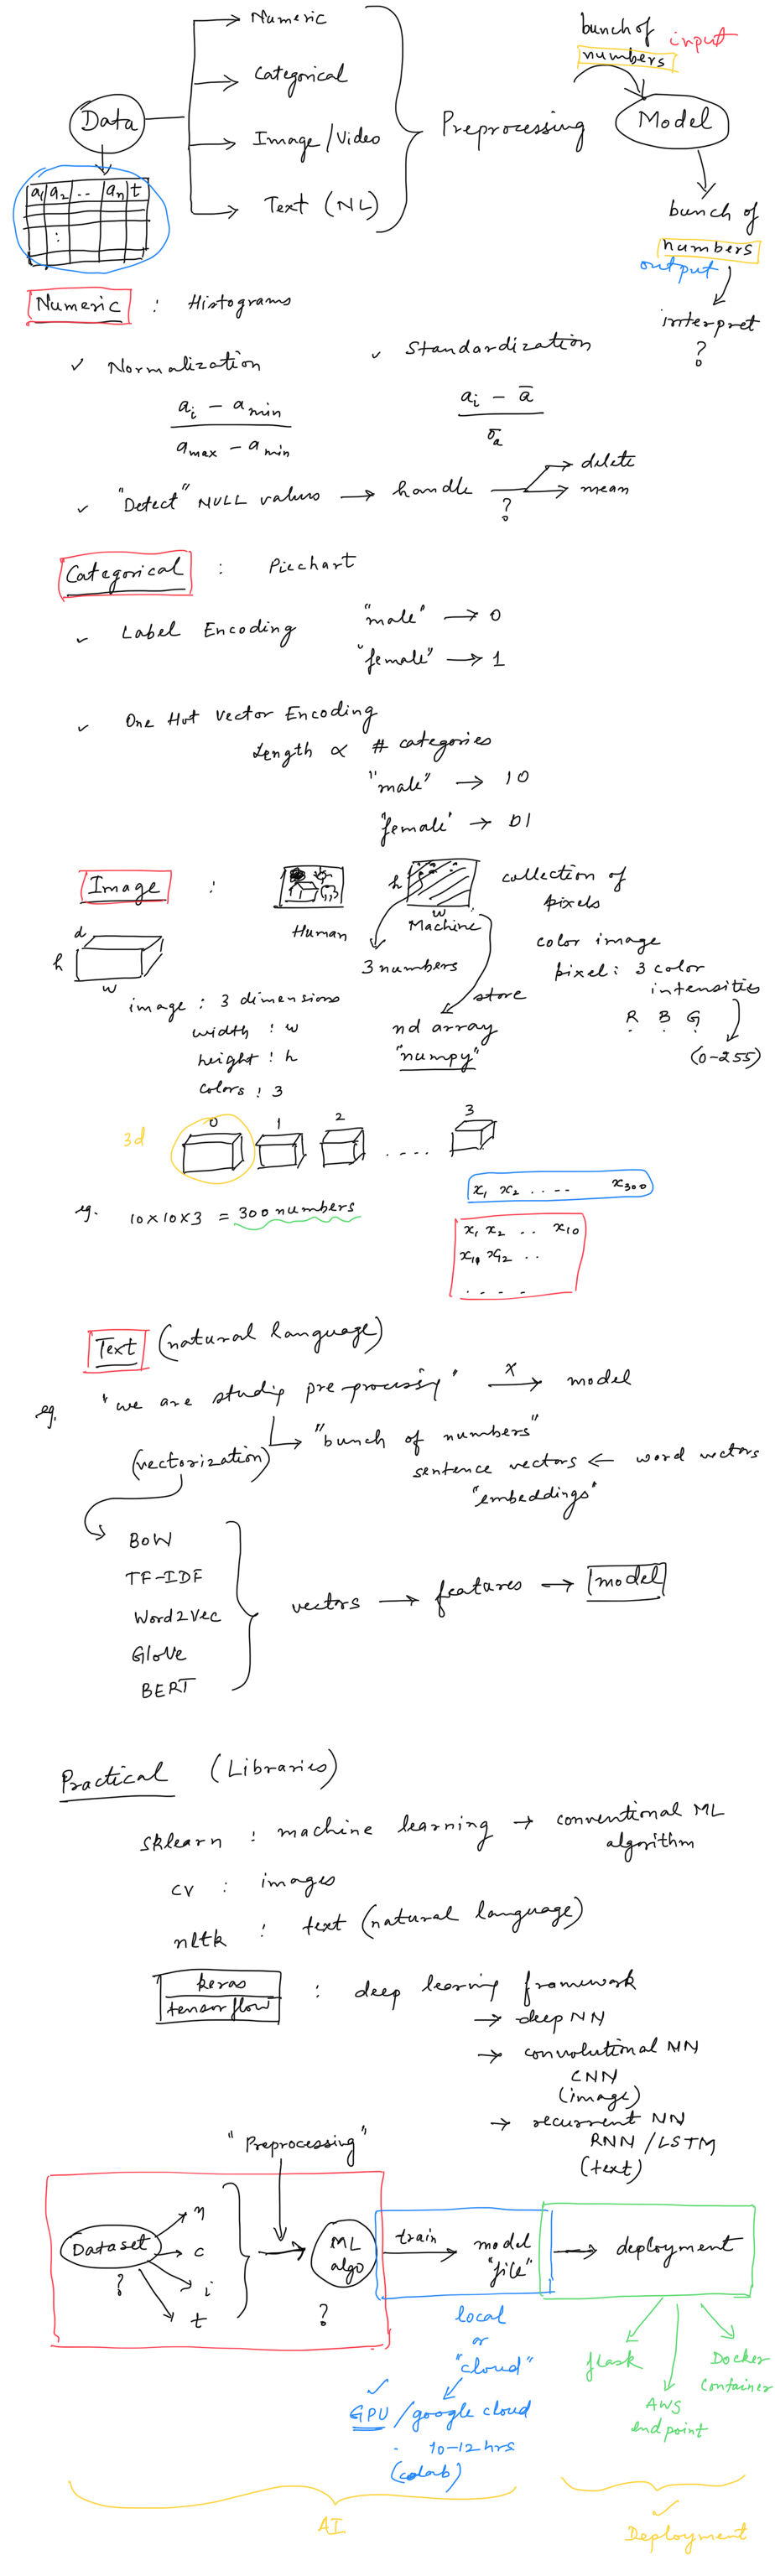 Data
a1 a2 .. an t
Numeric
Categorical
Image/Video
Text (NL)
Preprocessing
bunch of input
numbers
Model
bunch of
numbers
output
interpret
?
Numeric : Histograms
✓ Normalization
ai - amin
amax - amin
✓ Standardization
ai - ā
σa
✓ "Detect" NULL values → handle → delete
? → mean
Categorical : Piechart
✓ Label Encoding "male" → 0
"female" → 1
✓ One Hot Vector Encoding
Length ∝ # categories
"male" → 10
"female" → 01
Image :
Human
h
w
Machine
collection of
pixels
3 numbers
color image
pixel: 3 color
intensities
R B G
(0-255)
store
nd array
"numpy"
d
h
w
image : 3 dimensions
width : w
height : h
colors : 3
3d
0 1 2 .... 3
eg. 10x10x3 = 300 numbers
x1 x2 .... x300
x1 x2 .. x10
. . . .
Text (natural language)
eg. "we are studing pre-processing" X→ model
→ "bunch of numbers"
(vectorization)
sentence vectors ← word vectors
"embeddings"
BOW
TF-IDF
Word2Vec
GloVe
BERT
vectors → features → model
Practical (Libraries)
sklearn : machine learning → conventional ML
algorithm
cv : images
nltk : text (natural language)
keras
tensorflow
: deep learning framework
→ deep NN
→ convolutional NN
CNN
(image)
→ recurrent NN
RNN/LSTM
(text)
"Preprocessing"
Dataset
?
n
c
i
t
ML
algo
?
train
model
"file"
→ deployment
local
or
"cloud"
✓
GPU/google cloud
- 10-12 hrs
(colab)
flask
AWS
endpoint
Docker
container
AI
✓
Deployment